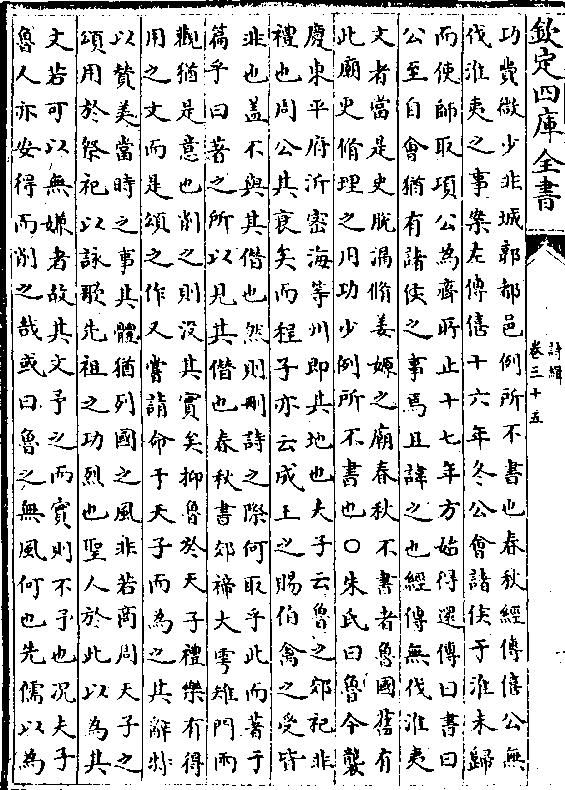 欽定四庫全書
詩緝
卷三十五
功費微少非城郭都邑例所不書也春秋經傳僖公無
伐淮夷之事案左傳僖十六年冬公會諸侯于淮未歸
而使師取項公為齊所止十七年方始得還傳曰書曰
公至自會猶有諸侯之事焉且諱之也經傳無伐淮夷
文者當是史脫漏脩姜嫄之廟春秋不書者魯國舊有
此廟更脩理之用功少例所不書也○朱氏曰魯今襲
慶東平府沂密海等州即其地也夫子云魯之郊祀非
禮也周公其衰矣而程子亦云成王之賜伯禽之受皆
非也盖不與其僭也然則刪詩之際何取乎此而著于
篇乎曰著之所以見其僭也春秋書郊禘大雩雉門兩
觀猶是意也削之則沒其實矣抑魯於天子禮樂有得
用之文而是頌之作又嘗請命于天子而為之其辭特
以贊美當時之事其體猶列國之風非若商周天子之
頌用於祭祀以詠歌先祖之功烈也聖人於此以為其
文若可以無嫌者故其文予之而實則不予也況夫子
魯人亦安得而削之哉或曰魯之無風何也先儒以為